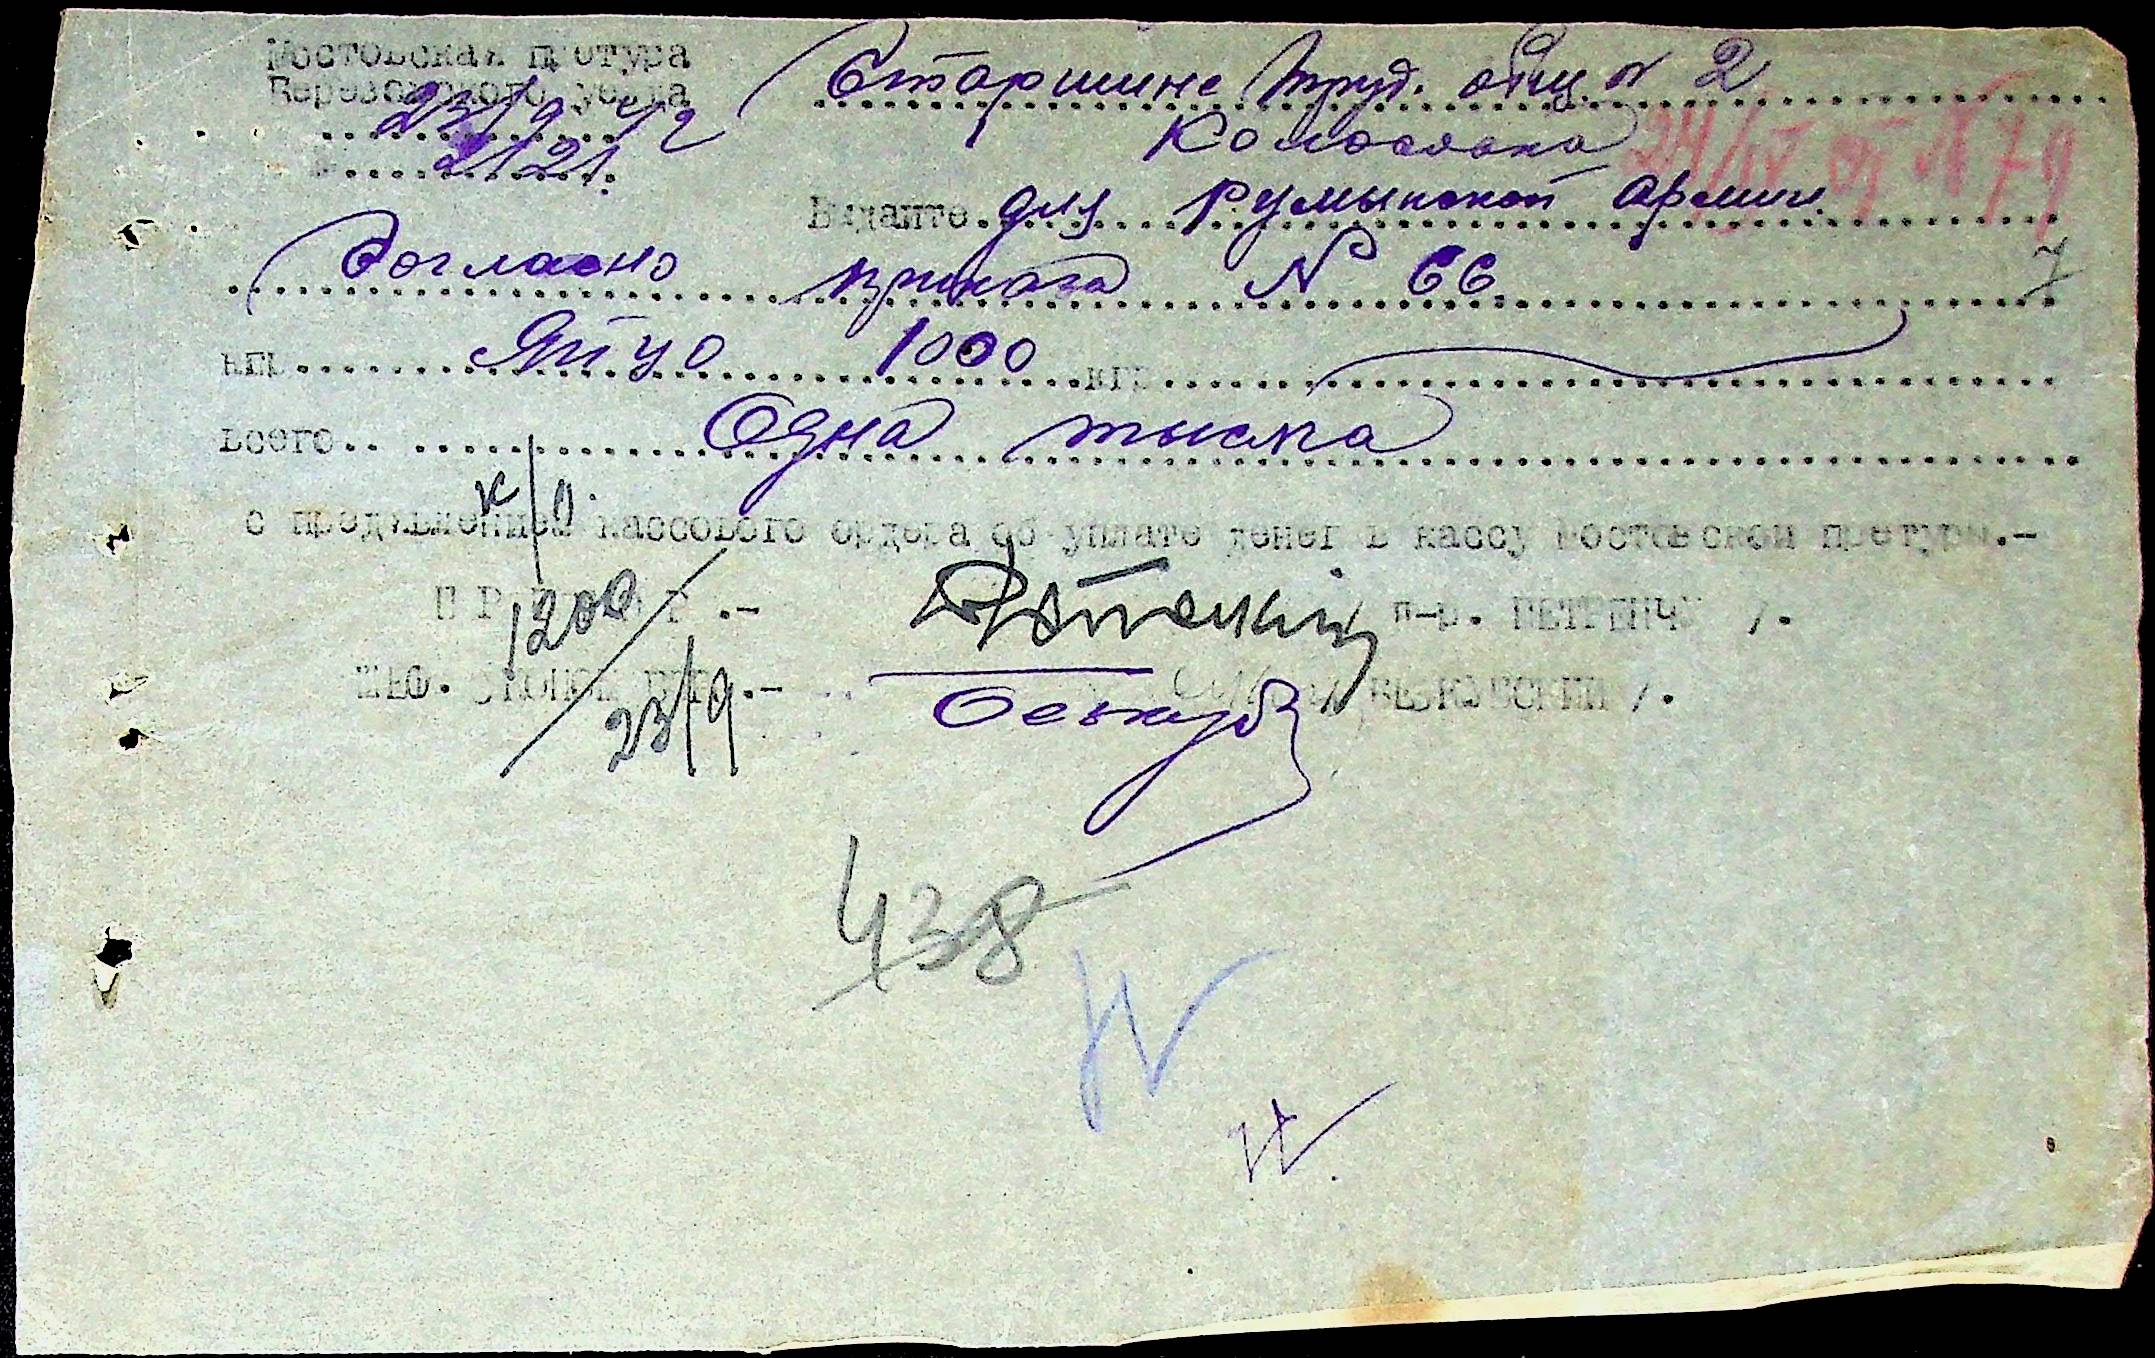 Мостовская претура
Березовского уезда
23/9. 42
№ 2121.
Старшине Труд. общ. № 2
Колосовка
24/IV 79
Выдайте для Румынской армии
7
Согласно приказа № 66
кгр. Яйцо 1000 кгр.
Всего Одна тысяча
к/о.
с предъявлением кассового ордера об уплате денег в кассу Мостовской претуры.-
1200
П Р Е Т О Р .-
п-р. ПЕТРЕНЧУ /.
23/9
ШЕФ. ЭКОНОМ .-
438